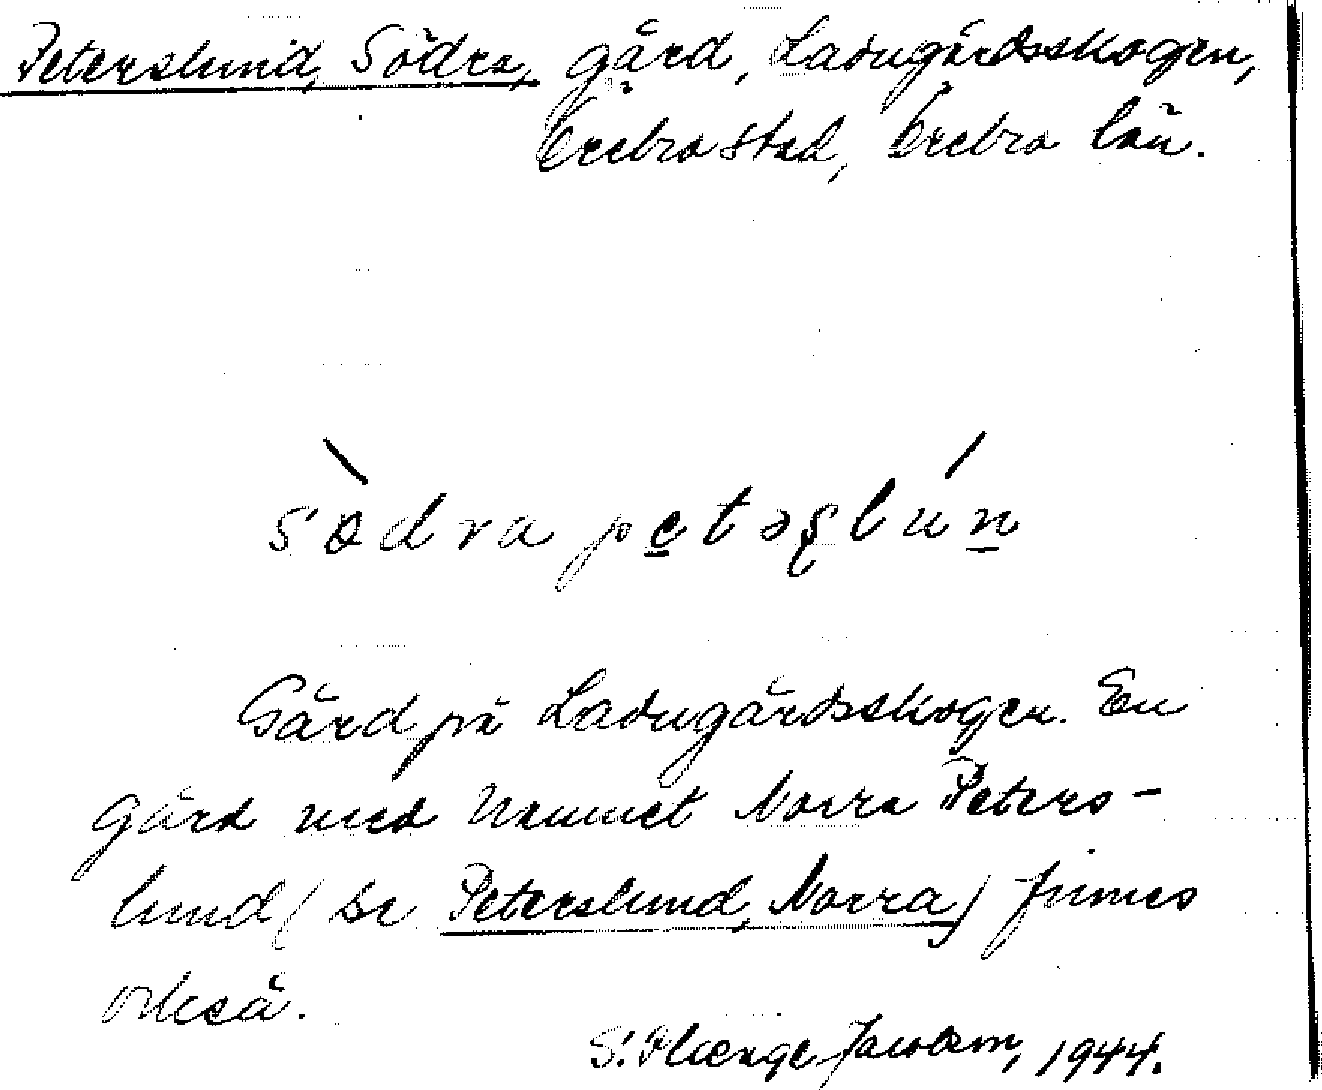 Peterslund, Södra, gård, Ladugårdsskogen,
Örebro stad, Örebro län.
södra petəʂlun
Gård på Ladugårdsskogen. En
gård med namnet Norra Peters-
lund (se Peterslund, Norra) finnes
också.
S. Jacobson, 1944.